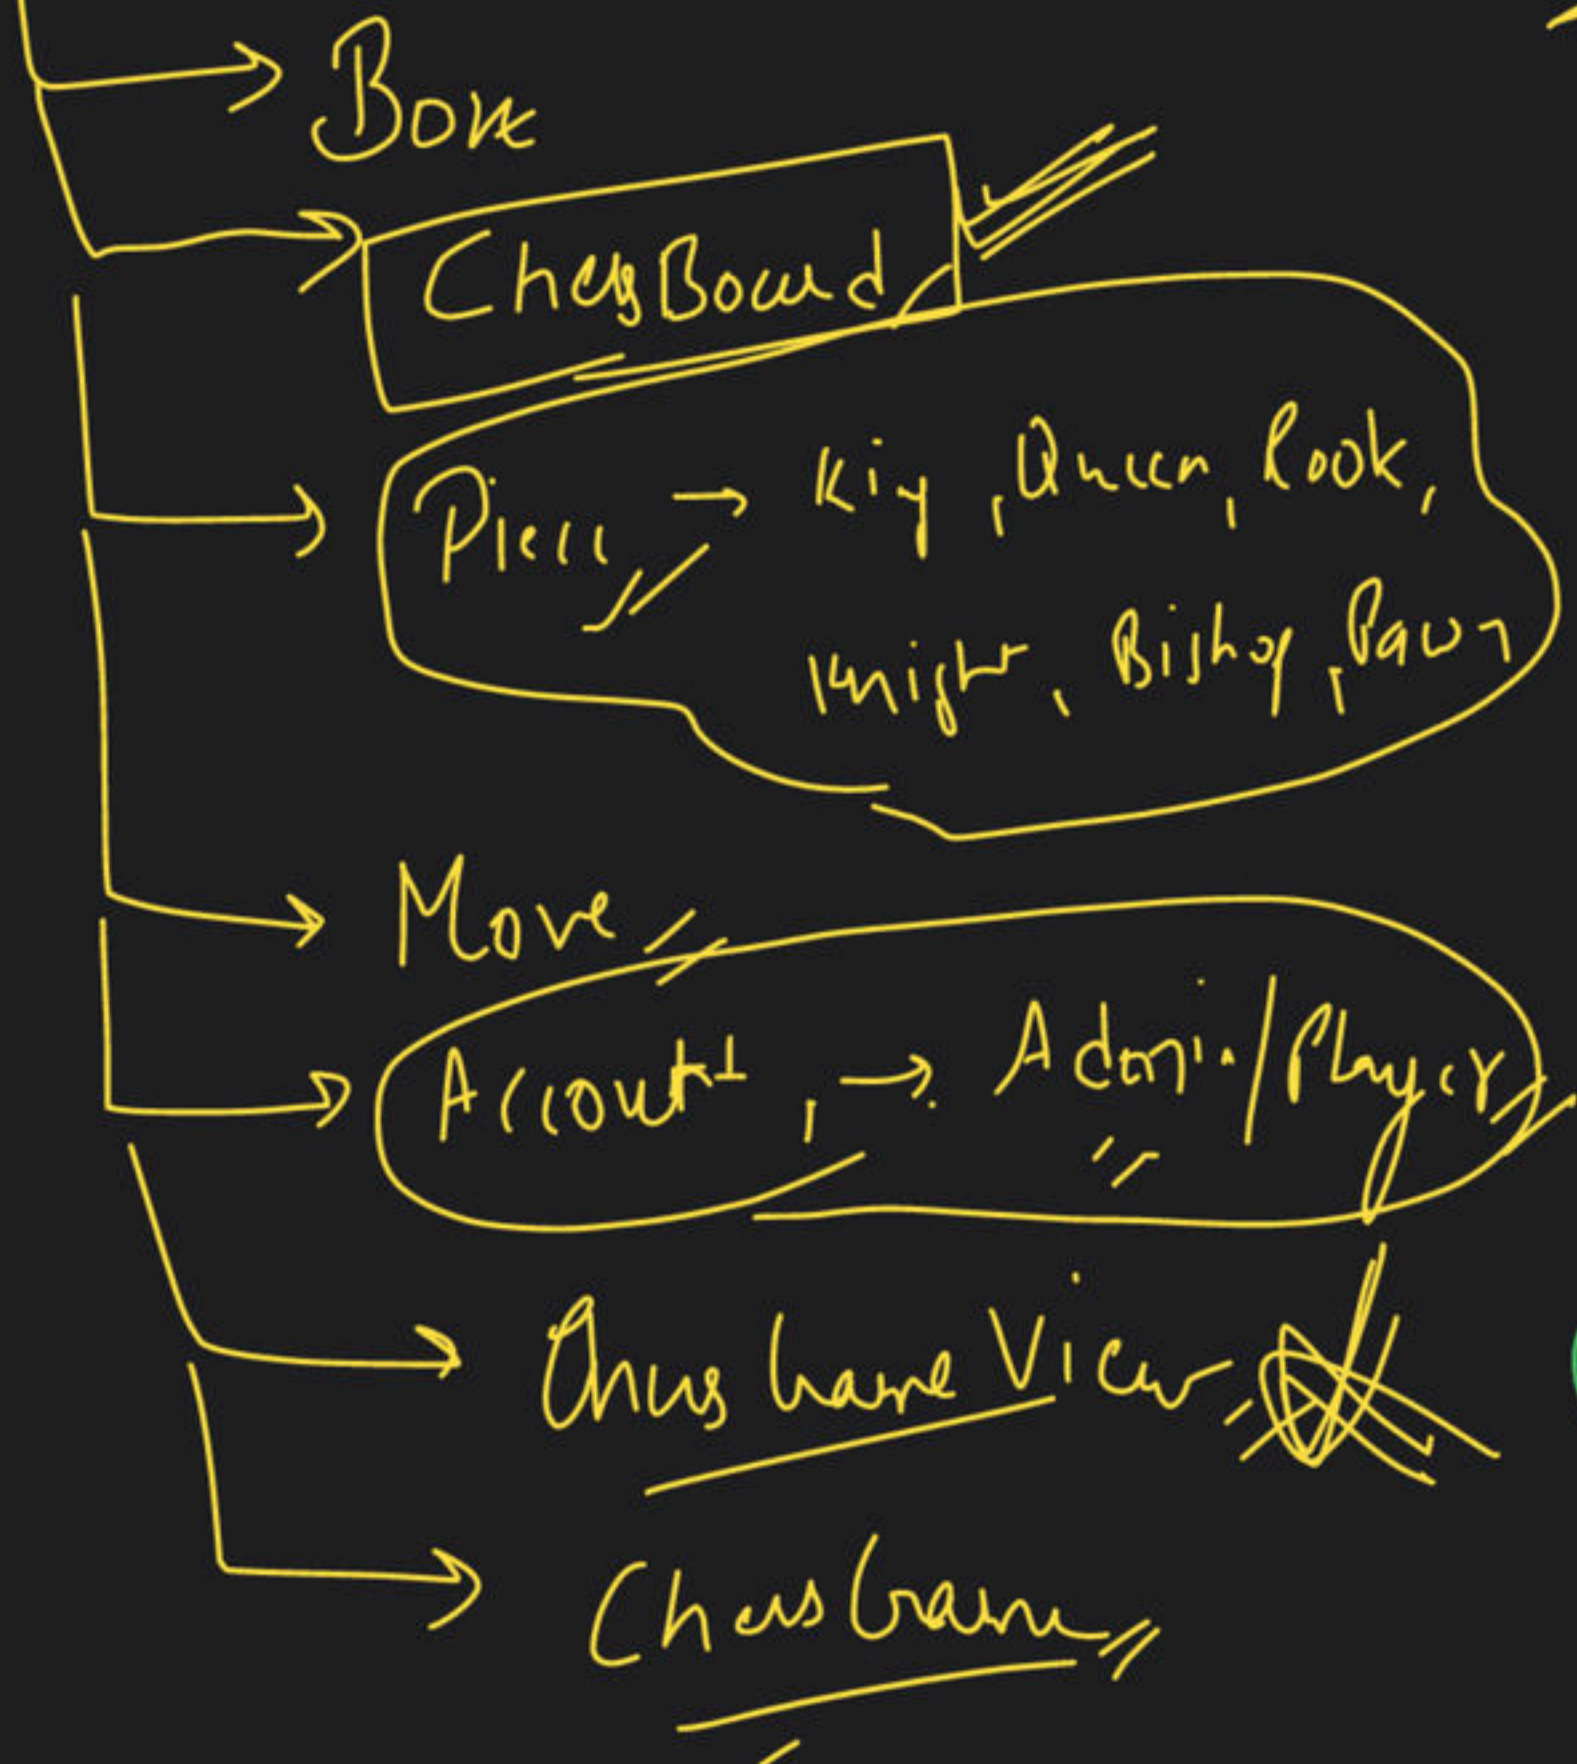 → Box
→ ChessBoard
→ Piece → King, Queen, Rook,
Knight, Bishop, Pawn
→ Move
→ Account, → Admin/Player
→ Chess Game View
→ Chess Game